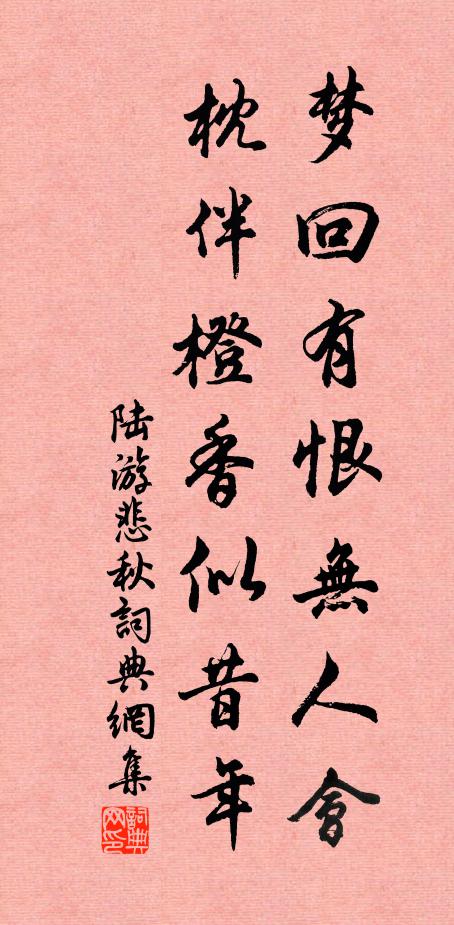 梦回有恨無人會
枕伴橙香似昔年
陆游悲秋詞典網集
詞典网印